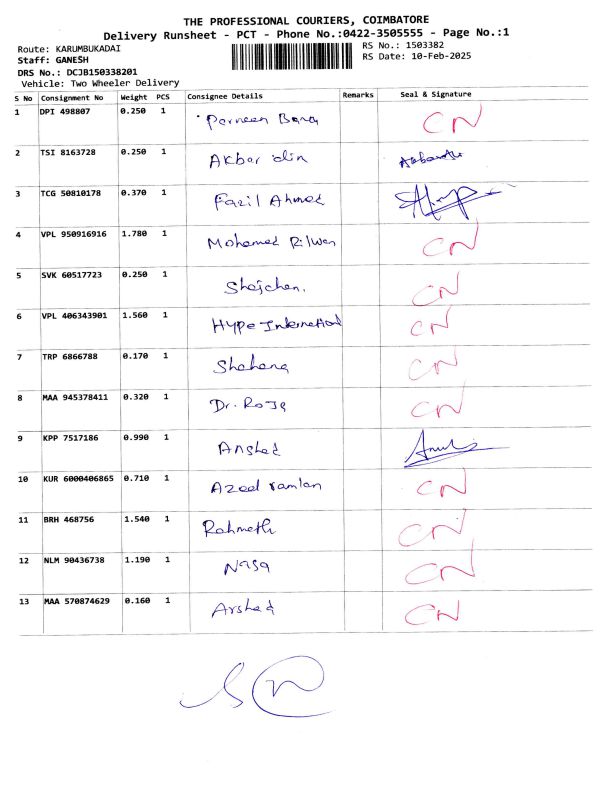 THE PROFESSIONAL COURIERS, COIMBATORE
Delivery Runsheet - PCT - Phone No.:0422-3505555 - Page No.:1
Route: KARUMBUKADAI RS No.: 1503382
Staff: GANESH RS Date: 10-Feb-2025
DRS No.: DCJB150338201
Vehicle: Two Wheeler Delivery
S No Consignment No Weight PCS Consignee Details Remarks Seal & Signature
1 DPI 498807 0.250 1 Perneen CN
2 TSI 8163728 0.250 1 Akbar din
3 TCG 50810178 0.370 1 Fazil Ahmed
4 VPL 950916916 1.780 1 Mohamed Rilwan CN
5 SVK 60517723 0.250 1 CN
6 VPL 406343901 1.560 1 Hype International CN
7 TRP 6866788 0.170 1 Shahana CN
8 MAA 945378411 0.320 1 Dr. Roja CN
9 KPP 7517186 0.990 1 Anshad
10 KUR 6000406865 0.710 1 Azeel ramlan CN
11 BRH 468756 1.540 1 Rahmath CN
12 NLM 90436738 1.190 1 CN
13 MAA 570874629 0.160 1 Arshad CN